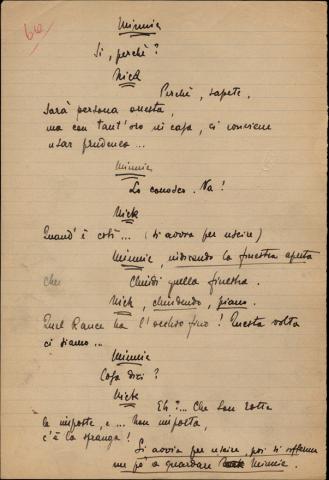 60
Minnie
Si, perchè?
Nick
Perchè, sapete.
Sarà persona onesta,
ma con tant'oro in casa, ci conviene
usar prudenza...
Minnie
Lo conosco. Va!
Nick
Quand'è così... (si avvia per uscire)
Minnie, indicando la finestra aperta
Chiudi quella finestra.
Nick, chiudendo, piano.
Quel Rance ha l'occhio fino! Questa volta
ci siamo...
Minnie
Cosa dici?
Nick
Eh?... Che son rotte
le imposte, e... non importa,
c'è la spranga!
Si avvia per uscire, poi si sofferma
un po' a guardare Minnie.